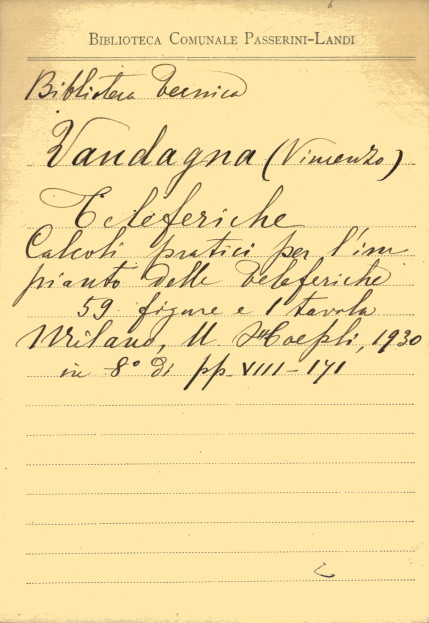 BIBLIOTECA COMUNALE PASSERINI-LANDI
Biblioteca Tecnica
Vandagna (Vincenzo)
Teleferiche
Calcoli pratici per l'im
pianto delle Teleferiche
59 figure e 1 tavola
Milano, U. Hoepli, 1930
in 8° di pp. VIII-171